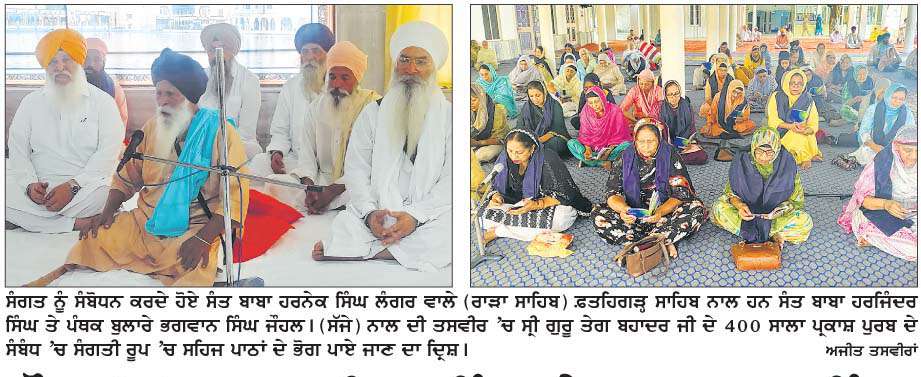 ਸੰਗਤ ਨੂੰ ਸੰਬੋਧਨ ਕਰਦੇ ਹੋਏ ਸੰਤ ਬਾਬਾ ਹਰਨੇਕ ਸਿੰਘ ਲੰਗਰ ਵਾਲੇ (ਰਾੜਾ ਸਾਹਿਬ) ਫ਼ਤਹਿਗੜ੍ਹ ਸਾਹਿਬ ਨਾਲ ਹਨ ਸੰਤ ਬਾਬਾ ਹਰਜਿੰਦਰ
ਸਿੰਘ ਤੇ ਪੰਥਕ ਬੁਲਾਰੇ ਭਗਵਾਨ ਸਿੰਘ ਜੌਹਲ। (ਸੱਜੇ) ਨਾਲ ਦੀ ਤਸਵੀਰ 'ਚ ਸ੍ਰੀ ਗੁਰੂ ਤੇਗ ਬਹਾਦਰ ਜੀ ਦੇ 400 ਸਾਲਾ ਪ੍ਰਕਾਸ਼ ਪੁਰਬ ਦੇ
ਸੰਬੰਧ 'ਚ ਸੰਗਤੀ ਰੂਪ 'ਚ ਸਹਿਜ ਪਾਠਾਂ ਦੇ ਭੋਗ ਪਾਏ ਜਾਣ ਦਾ ਦ੍ਰਿਸ਼। ਅਜੀਤ ਤਸਵੀਰਾਂ